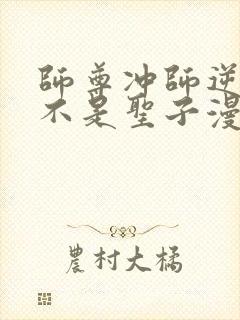 師尊冲師逆
不是聖子漫
農村大橘